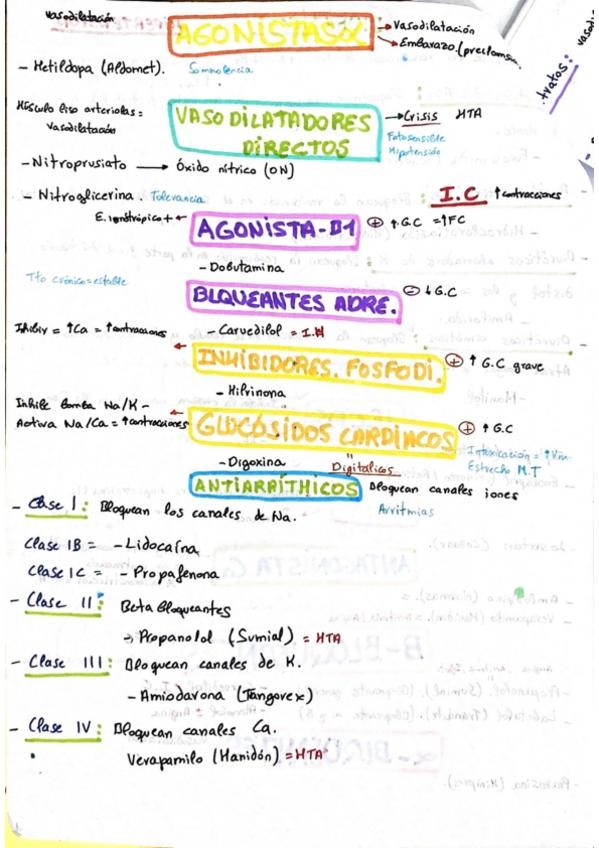 vasodilatación
AGONISTAS α
→ Vasodilatación
→ Embarazo (preclamsia
tratos:
- Metildopa (Aldomet). Somnolencia
Músculo liso arteriolas =
vasodilatación
VASODILATADORES
DIRECTOS
→ Crisis HTA
Fotosensible
Hipotensión
- Nitroprusiato → Óxido nítrico (ON)
- Nitroglicerina. Tolerancia
I.C ↑ contracciones
E. ionotrópico +
AGONISTA-B1
⊕ ↑ G.C = ↑ FC
- Dobutamina
Tto crónico = estable
BLQUEANTES ADRE.
⊖ ↓ G.C
- Carvedilol = I.H
Inhibir = ↑ Ca = ↑ contracciones
INHIBIDORES. FOSFODI.
⊕ ↑ G.C grave
- Milrinona
Inhibe bomba Na/K -
Activa Na/Ca = ↑ contracciones
GLUCÓSIDOS CARDÍACOS
⊕ ↑ G.C
- Digoxina
Digitálicos
Intoxicación =
Estrecho M.T
ANTIARRÍTHICOS
Bloquean canales iones
Arritmias
- Clase I: Bloquean los canales de Na.
Clase IB = - Lidocaína
Clase IC = - Propafenona
- Clase II: Beta Bloqueantes
→ Propanolol (Sumial) = HTA
- Clase III: Bloquean canales de K.
- Amiodarona (Tangorex)
- Clase IV: Bloquean canales Ca.
Verapamilo (Manidón) = HTA